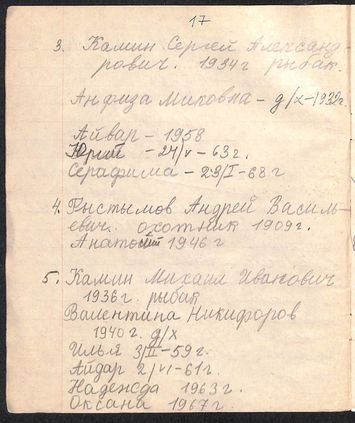 17
3. Камин Сергей Александ-
рович. 1934г рыбак.
Анфиза Миковна – д/х – 1939г.
Айвар – 1958
Юрий – 24/v – 63г.
Серафима – 23/I – 68г
4. Рыстымов Андрей Василь-
евич. охотник 1909г.
Анатолий 1946г
5. Камин Михаил Иванович
1936г. рыбак
Валентина Никифоров
1940г. д/х
Илья 3/II – 59г.
Айдар 2/VI – 61г.
Надежда 1963г.
Оксана 1967г